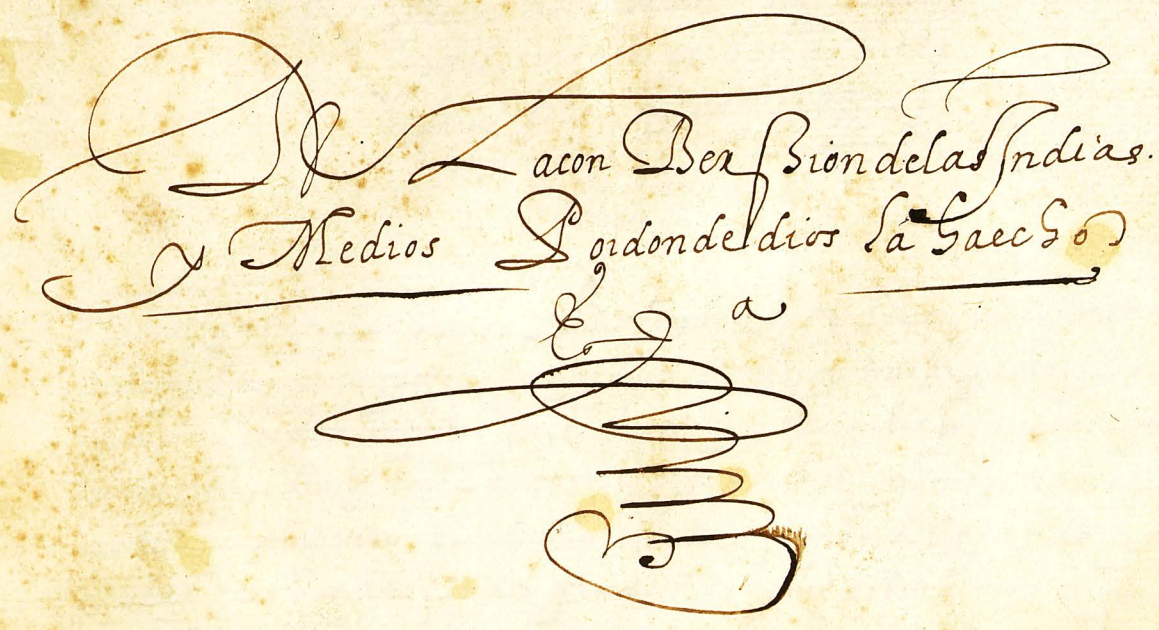 De La conBerssion de las Indias.
y Medios Por donde dios la ha echo